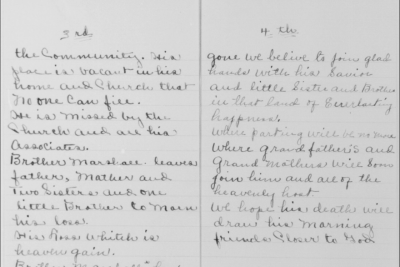 3rd
the Community. His
place is vacant in his
home and Church that
No one Can fill.
He is Missed by the
Church and all his
Associates.
Brother Marshall leaves
father, Mother and
Two Sisters and one
little Brother to Morn
his loss.
His loss which is
heaven gain.
Brother
4 th
gone we belive to join glad
hands with his Savior
and little Sister and Brother
in that land of Everlasting
happness.
where parting will be no more
Where grand father's and
Grand Mothers will soon
join him and all of the
heavenly host
We hope his death will
draw his Morning
friends Closer to God